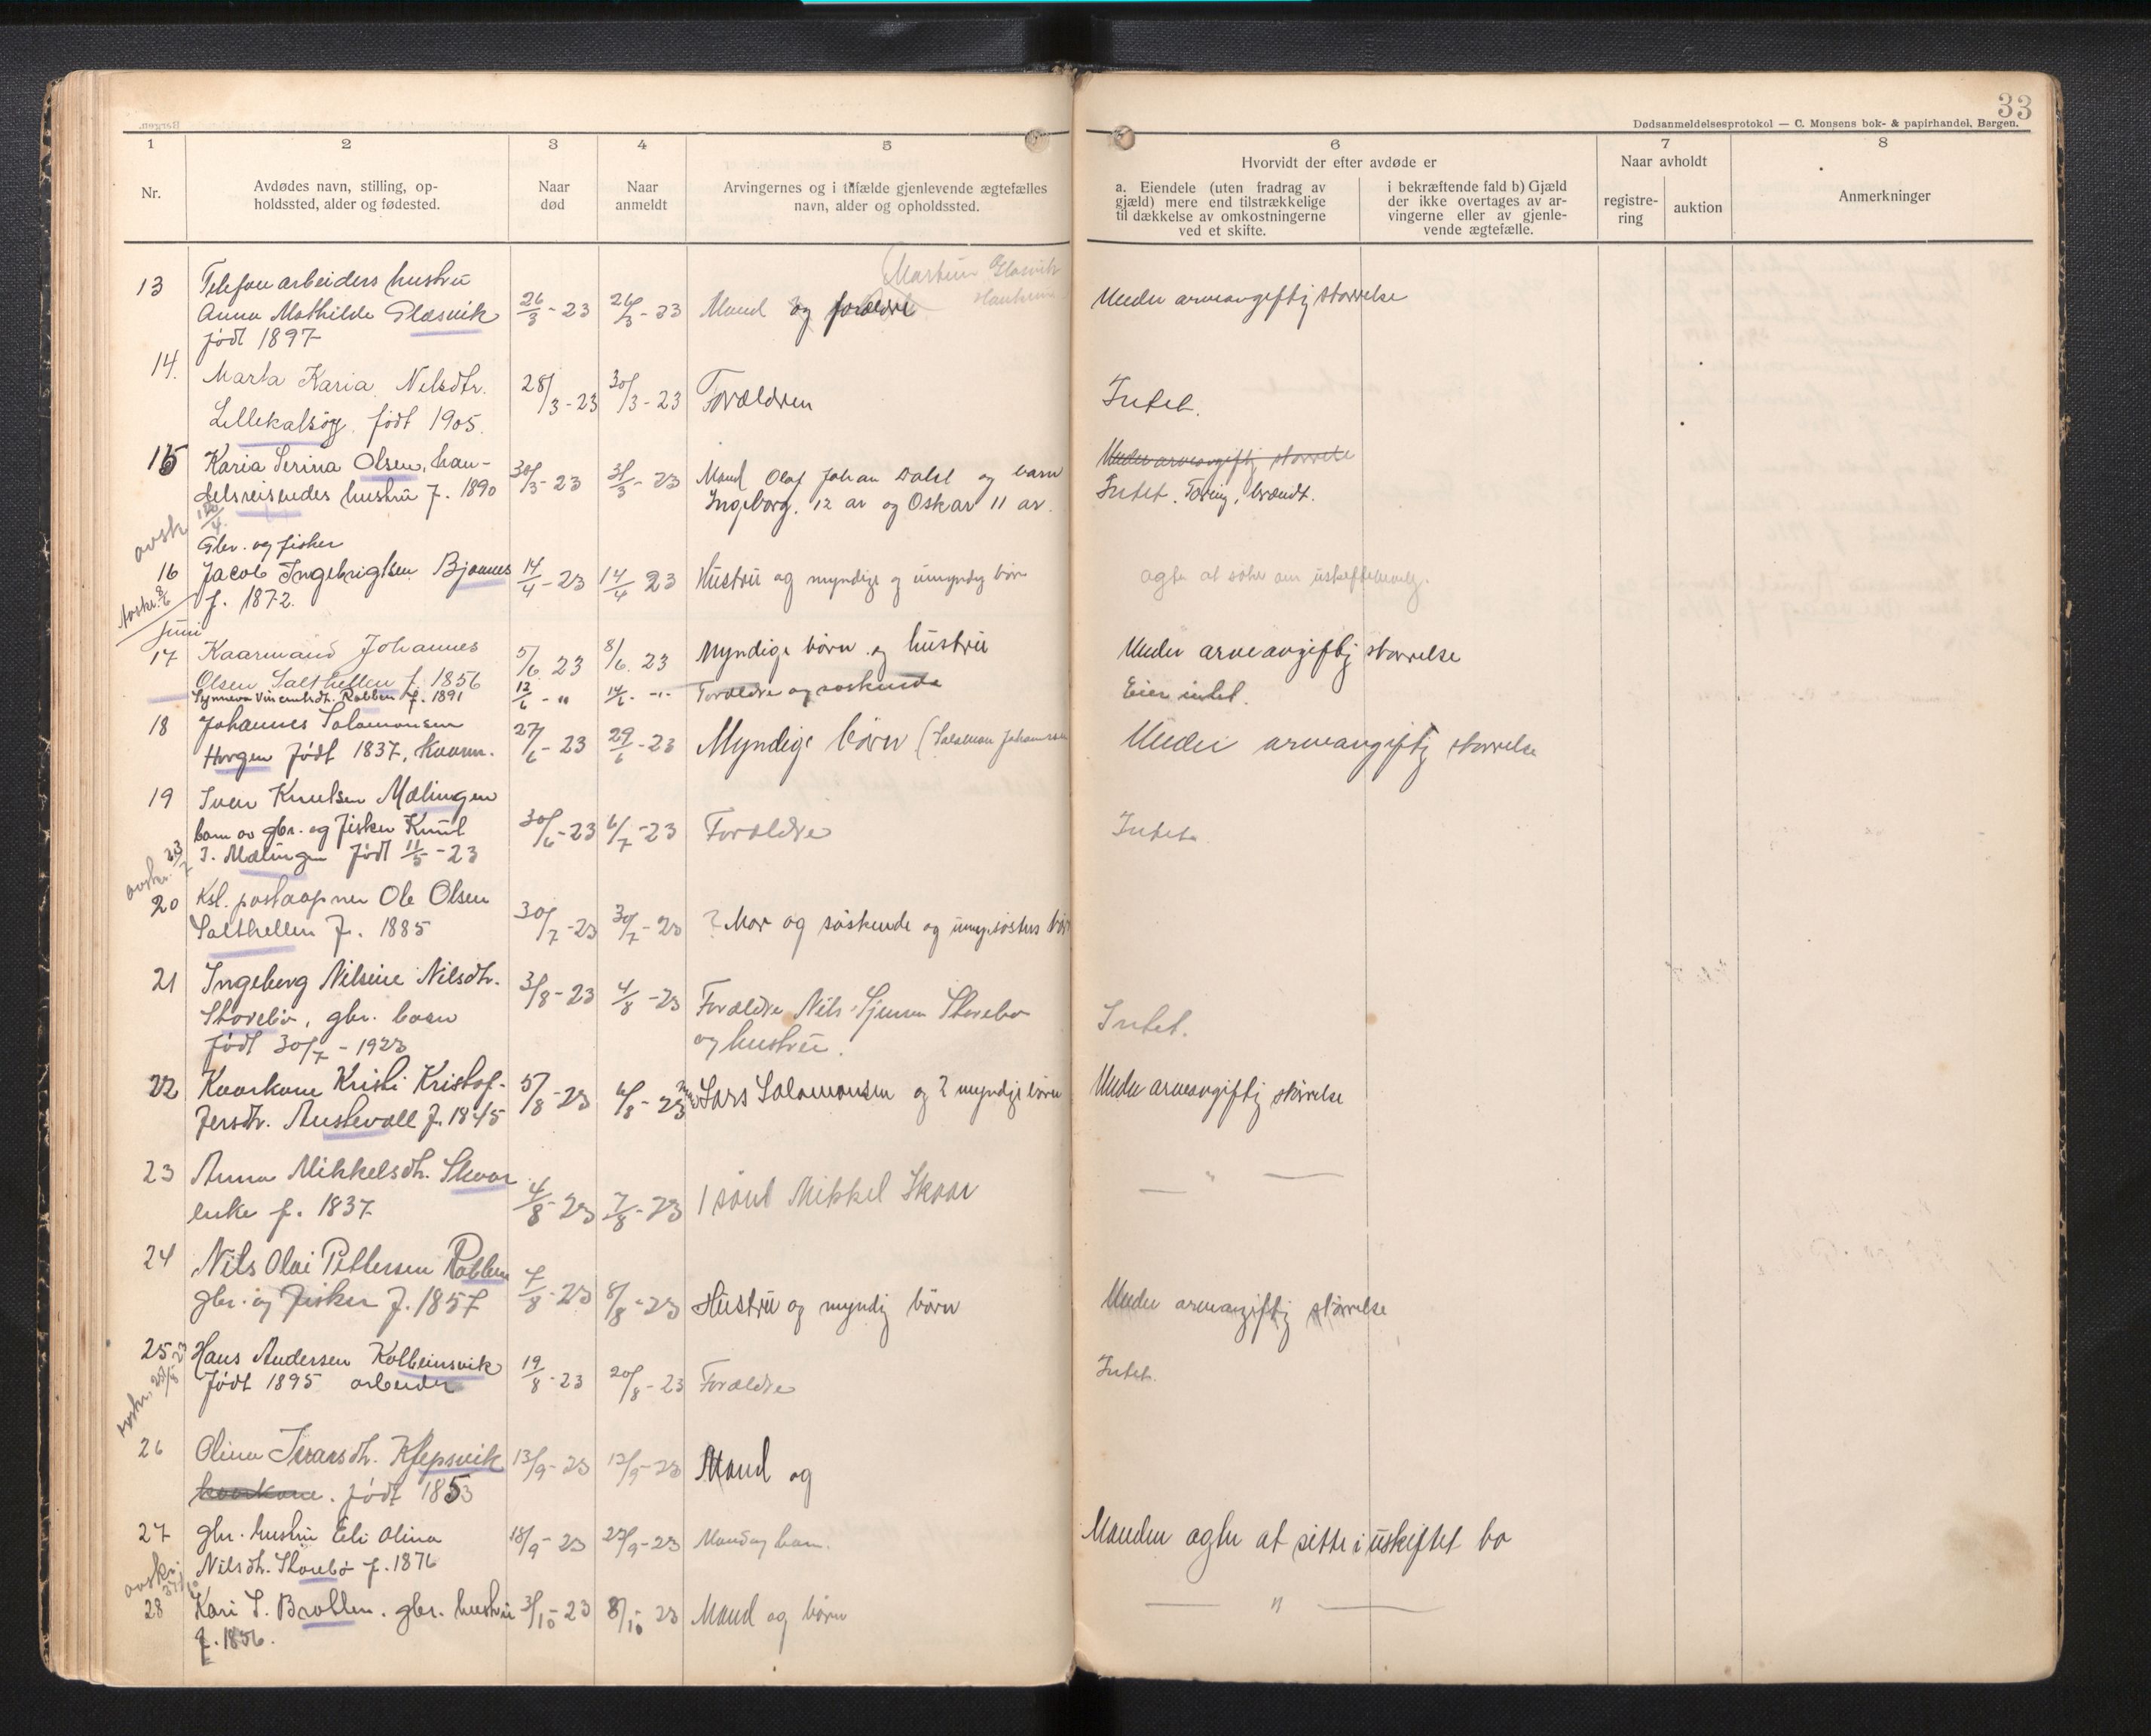 33
Dødsanmeldelsesprotokol — C. Monsens bok- & papirhandel, Bergen.
1 2 3 4 5 6 7 8
Nr.
Avdødes navn, stilling, op-
holdssted, alder og fødested.
Naar
død
Naar
anmeldt
Arvingernes og i tilfælde gjenlevende ægtefælles
navn, alder og opholdssted.
Hvorvidt der efter avdøde er
a. Eiendele (uten fradrag av
gjæld) mere end tilstrækkelige
til dækkelse av omkostningerne
ved et skifte.
i bekræftende fald b) Gjæld
der ikke overtages av ar-
vingerne eller av gjenle-
vende ægtefælle.
Naar avholdt
registre-
ring
auktion
Anmerkninger
13 Telefonarbeiders hustru
Anna Mathilde Glæsvik 26/3-23 26/3-23 Mand og forældre Under arveavgiftig størrelse
Martin Glæsvik
født 1897
14. Marta Karia Nelsdtr. 28/3-23 30/3-23 Forældren Intet.
Lillekalsøy, født 1905.
15 Karia Serina Olsen, han- 30/3-23 31/3-23 Mand Olaf Johan Dahl og barn Under arveavgiftig størrelse
delsreisendes hustru f. 1890 Ingeborg, 12 år og Oskar 11 år. Intet. brændt.
avskr
Gbr. og fisker
16 Jacob Ingebrigtsen Bjønnes 14/4-23 14/4 23 Hustru og myndige og umyndig børn agter at søke om uskiftebevilg.
f. 1872.
Avskr. 8/6
Juni
17 Kaarmand Johannes 5/6 23 8/6. 23 Myndige børn og hustru Under arveavgiftig størrelse
Olsen Salthellen f. 1856
Synneva Vincentsdt. Rabben f. 1891 12/6 - " 14/6 - " - Forældre og søskende Eier intet.
18 Johannes Salamonsen 27/6-23 29/6-23 Myndige børn (Salamon Johannessen Under arveavgiftig størrelse
Horgen født 1837, Kaarm.
19 Iver Knutsen Mælingen 30/6-23 6/7-23 Forældre Intet.
barn av gbr. og fisker Knut
I. Mælingen født 11/5-23
avskr. 23/7
20 Ksl. postaapner Ole Olsen 30/7-23 30/7-23 ? Mor og søskende og
Salthellen f. 1885
21 Ingeborg Nilsine Nilsdtr. 3/8-23 4/8-23 Forældre Nils Storebø Intet.
Storebø, gbr. barn og hustru.
født 30/7-1923
22 Kaarkone Kristi Kristof- 5/8-23 6/8-23 Lars Salamonsen og 2 myndige børn Under arveavgiftig størrelse
fersdtr. Austevoll f. 1845
23 Anna Mikkelsdtr. Skaar 4/8-23 7/8-23 1 sønn Mikkel Skaar — " —
enke f. 1837
24 Nils Olai Pettersen Rabben 7/8-23 8/8-23 Hustru og myndig børn Under arveavgiftig størrelse
gbr. og fisker f. 1857
25 Hans Andersen Kolbeinsvik 19/8-23 20/8-23 Forældre Intet.
født 1895 arbeider
avskr.
26 Olina Ivarsdtr. Kleppsvik 13/9-23 17/9-23 Mand og
kaarkone. født 1853
27 gbr. hustru Eli Olina 18/9-23 27/9-23 Mand og barn. Manden agter at sitte i uskiftet bo
Nilsdtr. Storebø f. 1876
avskr.
28 Kari S. Bratten. gbr. hustru 3/10-23 8/10-23 Mand og børn — " —
f. 1856.